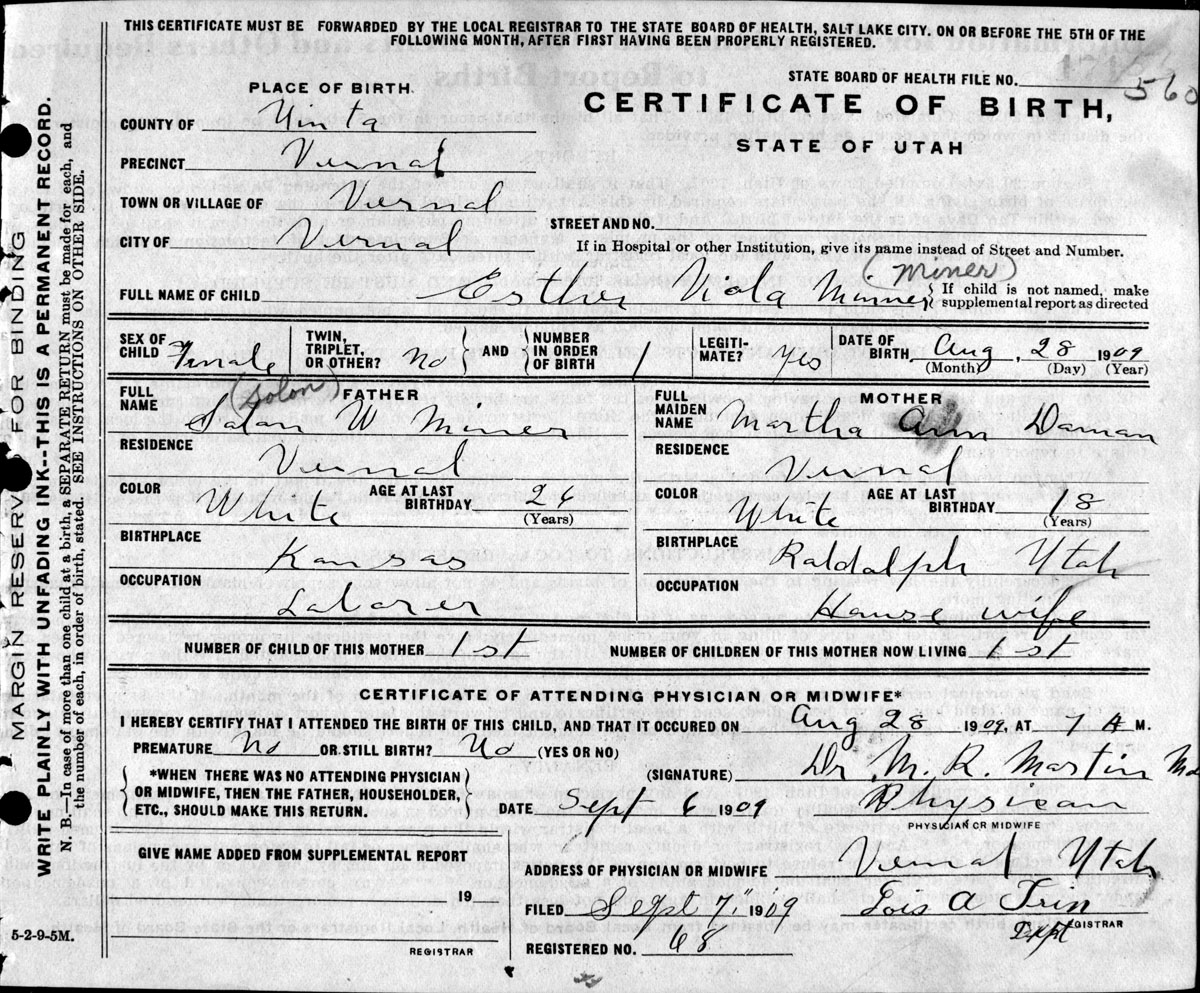 THIS CERTIFICATE MUST BE FORWARDED BY THE LOCAL REGISTRAR TO THE STATE BOARD OF HEALTH, SALT LAKE CITY. ON OR BEFORE THE 5TH OF THE
FOLLOWING MONTH, AFTER FIRST HAVING BEEN PROPERLY REGISTERED.
MARGIN RESERVED FOR BINDING
WRITE PLAINLY WITH UNFADING INK--THIS IS A PERMANENT RECORD.
N. B.—In case of more than one child at a birth, a SEPARATE RETURN must be made for each, and
the number of each, in order of birth, stated. SEE INSTRUCTIONS ON OTHER SIDE.
STATE BOARD OF HEALTH FILE NO. 560
PLACE OF BIRTH.
CERTIFICATE OF BIRTH,
STATE OF UTAH
COUNTY OF Uinta
PRECINCT Vernal
TOWN OR VILLAGE OF Vernal
STREET AND NO.
CITY OF Vernal
If in Hospital or other Institution, give its name instead of Street and Number.
(Miner)
FULL NAME OF CHILD Esther Viola Minner { If child is not named, make
supplemental report as directed
SEX OF CHILD Female TWIN, TRIPLET, OR OTHER? No AND NUMBER IN ORDER OF BIRTH 1 LEGITI- MATE? Yes DATE OF BIRTH, Aug, 28 1909
(Month) (Day) (Year)
FULL NAME FATHER (Solon)
Salan W Miner
FULL MAIDEN NAME MOTHER
Martha Ann Daman
RESIDENCE Vernal
RESIDENCE Vernal
COLOR White AGE AT LAST BIRTHDAY 26 (Years)
COLOR White AGE AT LAST BIRTHDAY, 18 (Years)
BIRTHPLACE Kansas
BIRTHPLACE Raldalph Utah
OCCUPATION Laborer
OCCUPATION House wife
NUMBER OF CHILD OF THIS MOTHER 1st NUMBER OF CHILDREN OF THIS MOTHER NOW LIVING 1st
CERTIFICATE OF ATTENDING PHYSICIAN OR MIDWIFE*
I HEREBY CERTIFY THAT I ATTENDED THE BIRTH OF THIS CHILD, AND THAT IT OCCURED ON Aug 28 1909, AT 7 A M.
PREMATURE No OR STILL BIRTH? No (YES OR NO)
*WHEN THERE WAS NO ATTENDING PHYSICIAN
OR MIDWIFE, THEN THE FATHER, HOUSEHOLDER,
ETC., SHOULD MAKE THIS RETURN.
(SIGNATURE) Dr. M. R. Martin Md
DATE Sept 6 1909 Physican
PHYSICIAN OR MIDWIFE
GIVEN NAME ADDED FROM SUPPLEMENTAL REPORT
19
REGISTRAR
ADDRESS OF PHYSICIAN OR MIDWIFE Vernal Utah
FILED Sept 7, 1909 Lois A
REGISTRAR
REGISTERED NO. 68
5-2-9-5M.